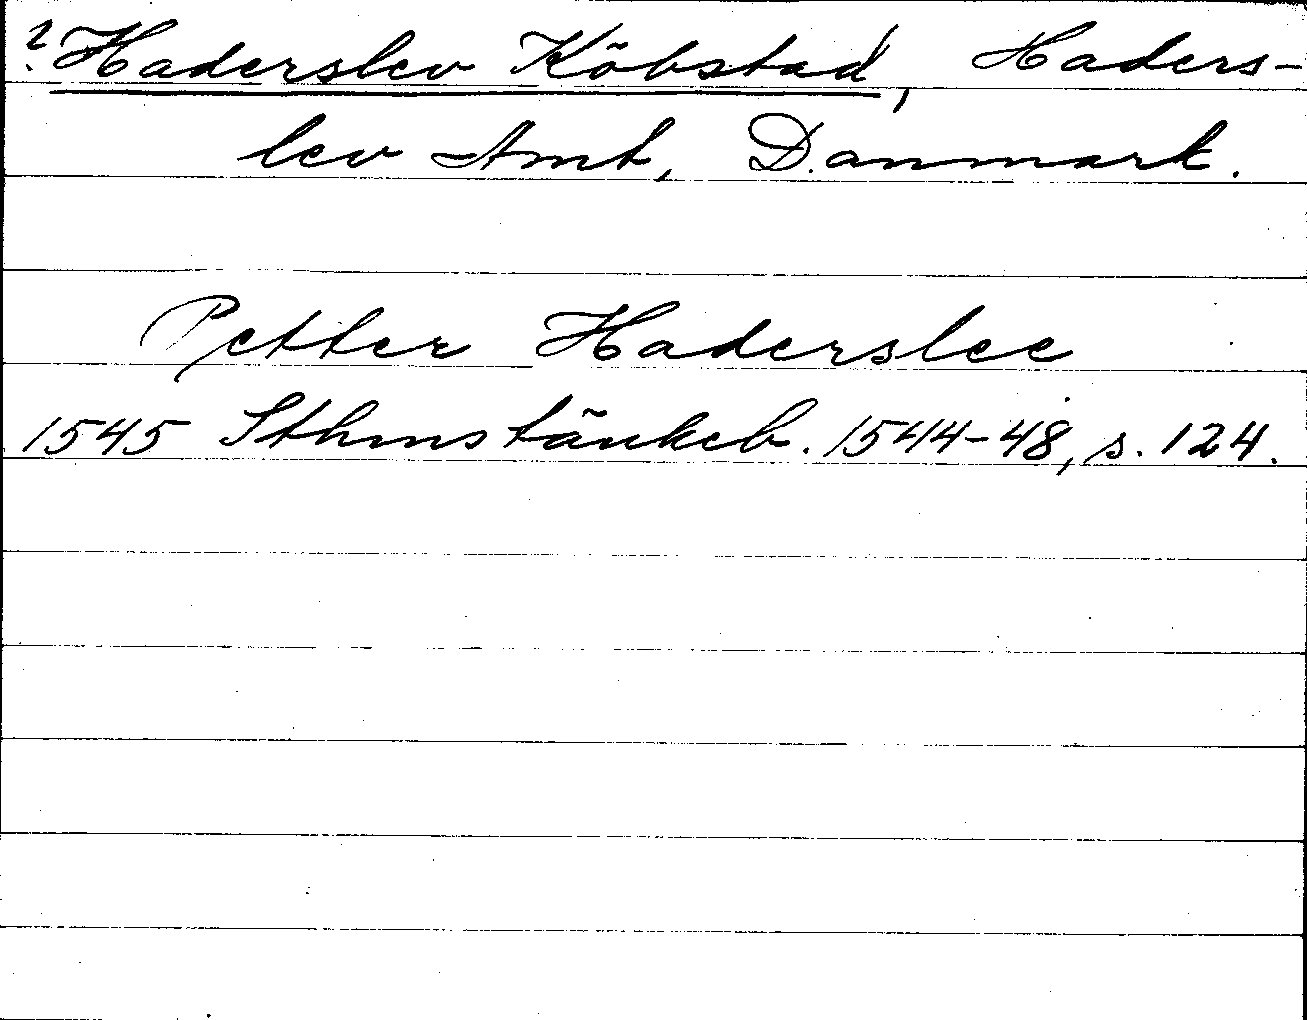 ? Haderslev Köbstad, Haders-
lev Amt, Danmark.
Petter Haderslee
1545 Sthms tänkeb. 1544-48, s. 124.